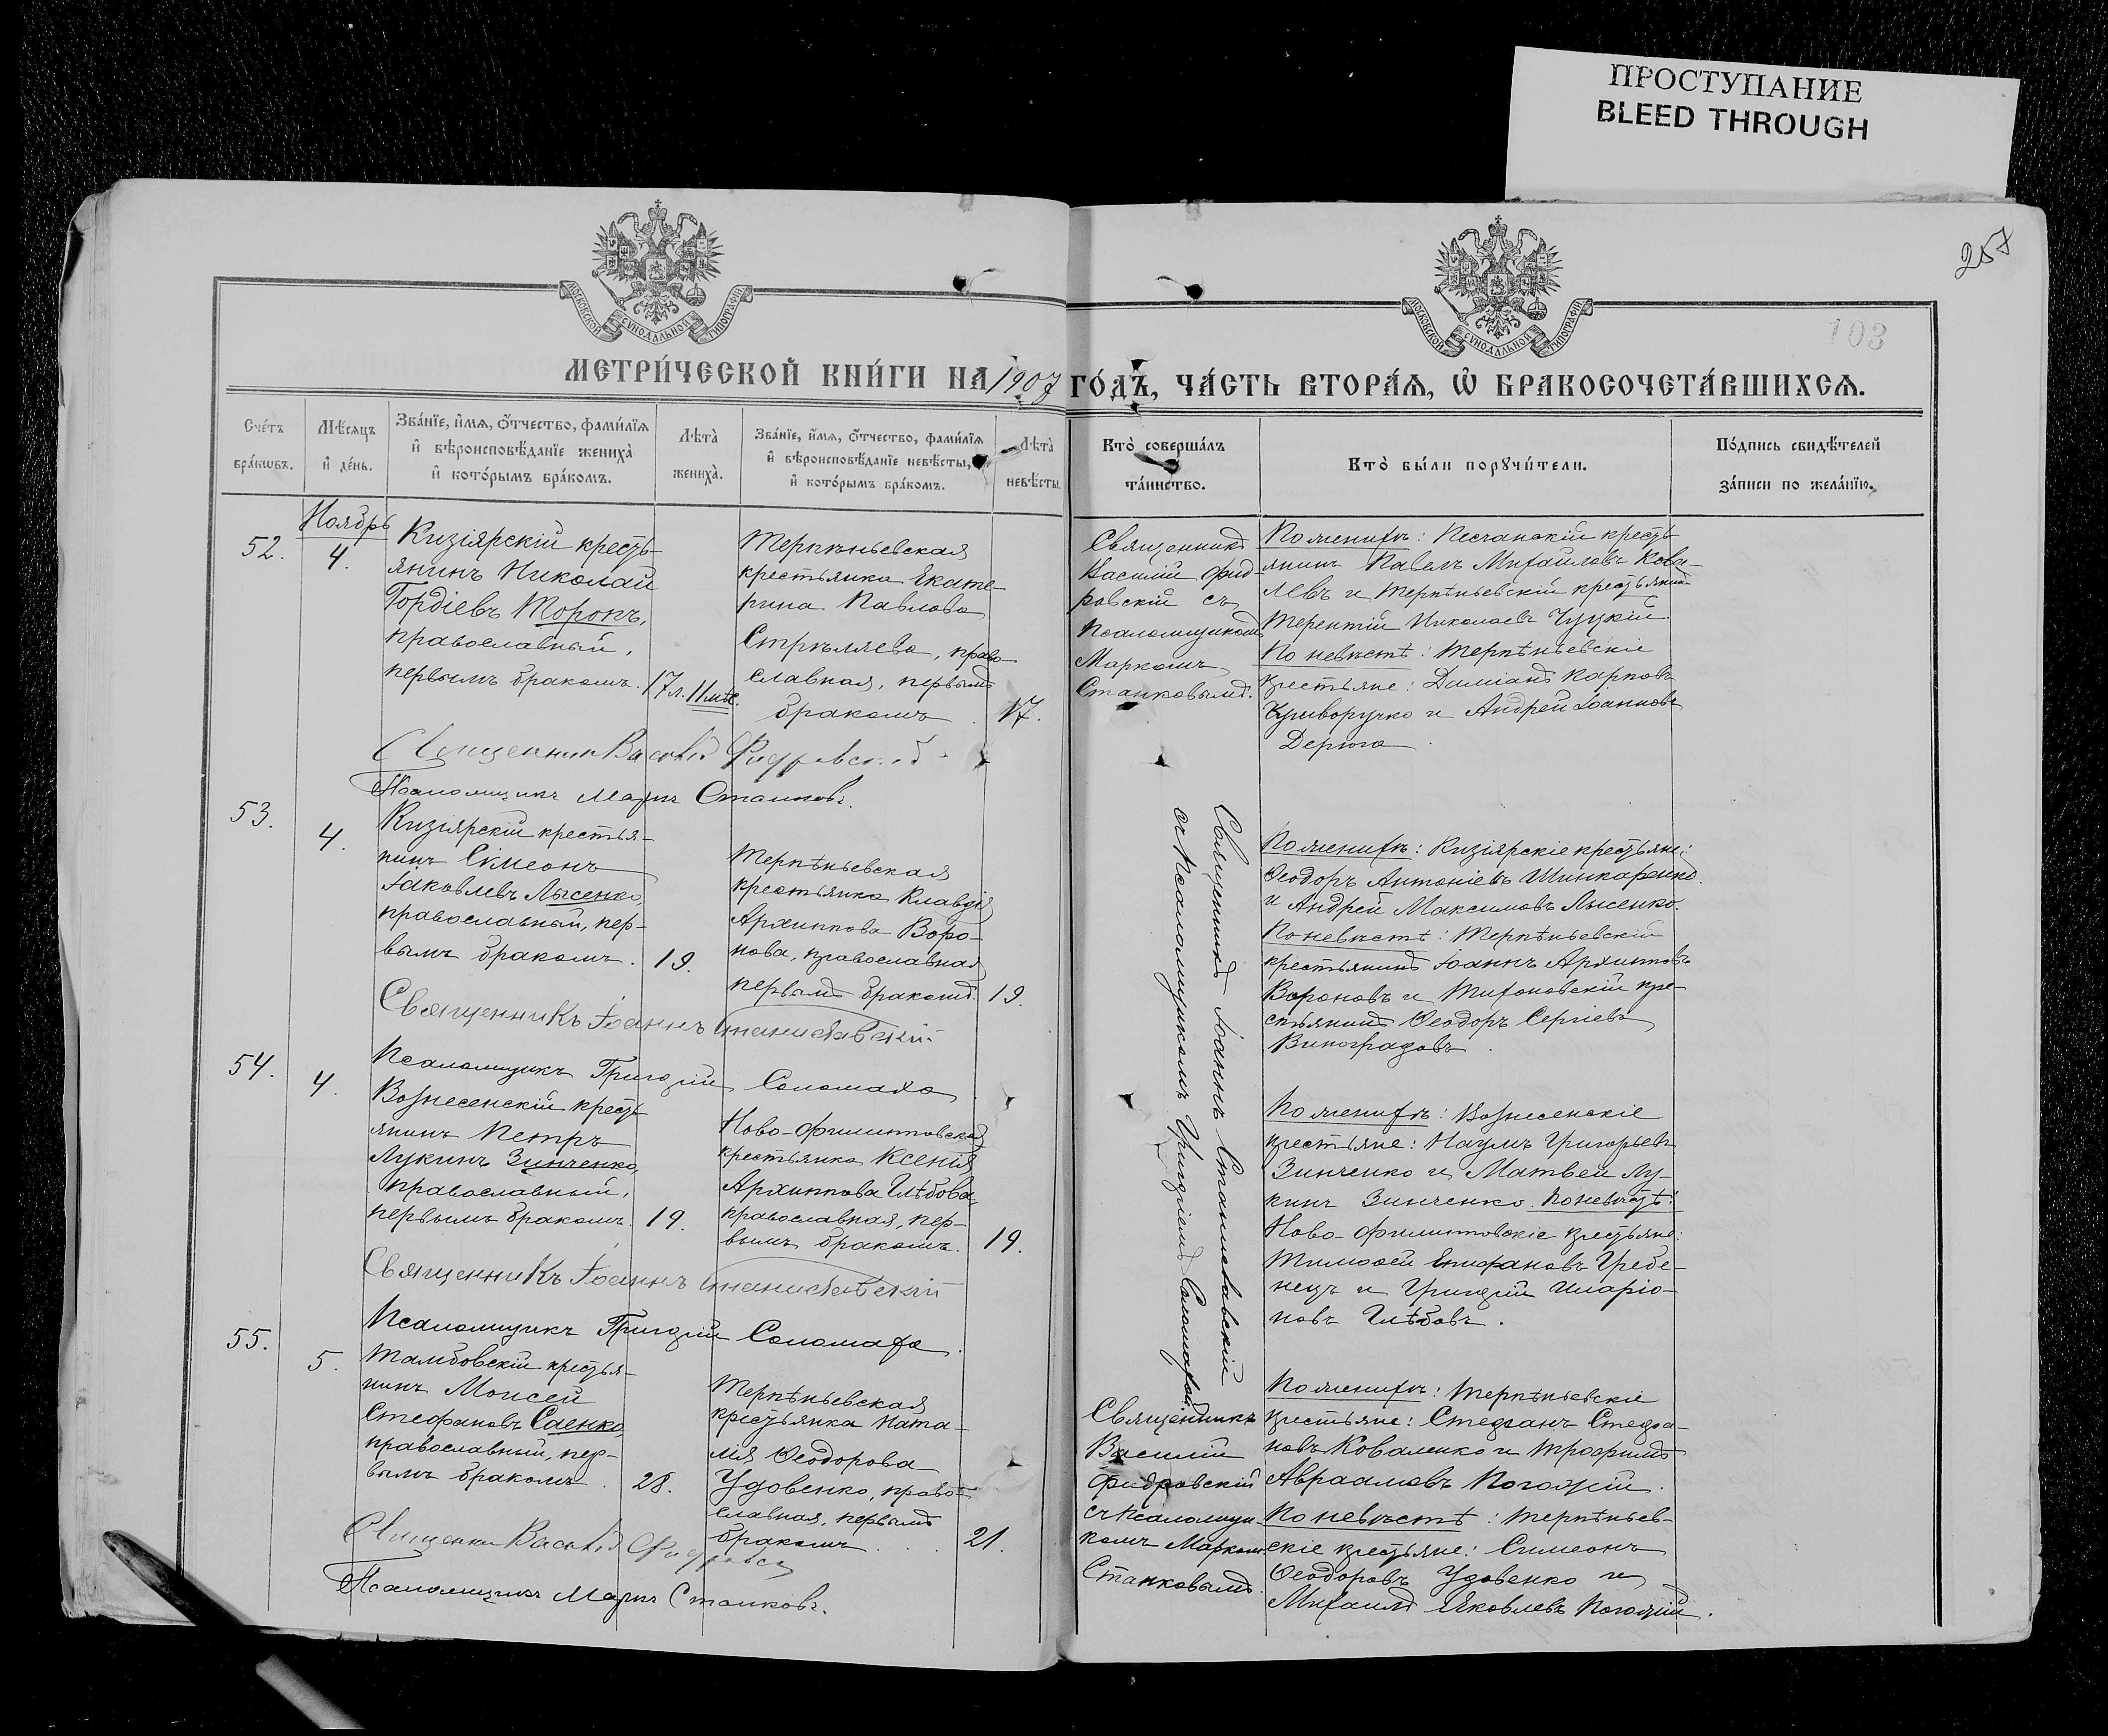 ПРОСТУПАНИЕ
BLEED THROUGH
257
103
МОСКОВСКОЙ СѴНОДАЛЬНОЙ ТИПОГРАФІИ
МОСКОВСКОЙ СѴНОДАЛЬНОЙ ТИПОГРАФІИ
МЕТРИ́ЧЕСКОЙ КНИ́ГИ НА 1907 ГО́ДЪ, ЧА́СТЬ ВТОРА́Ѧ, Ѡ БРАКОСОЧЕТА́ВШИХСѦ.
Сче́тъ
бра́кѡвъ.
Мѣ́сяцъ
и҆ де́нь.
Зва́нїе, и҆́мѧ, ѻ҆́тчество, фами́лїѧ
и҆ вѣроисповѣ́данїе жениха̀
и҆ кото́рымъ бра́комъ.
Лѣта̀
жениха̀.
Зва́нїе, и҆́мѧ, ѻ҆́тчество, фами́лїѧ
и҆ вѣроисповѣ́данїе невѣ́сты,
и҆ кото́рымъ бра́комъ.
Лѣта̀
невѣ́сты.
Кто̀ соверша́лъ
та́инство.
Кто̀ бы́ли порꙋчи́тели.
По́дпись свидѣ́телей
за́писи по жела́нїю.
Ноябрь
52.
4.
Кизіярскій кресть-
янинъ Николай
Гордіевъ Торопъ,
православный,
первымъ бракомъ.
17 л. 11 мѣс.
Терпѣньевская
крестьянка Екате-
рина Павлова
Стрѣляева, право-
славная, первымъ
бракомъ.
17.
Священникъ
Василій Фид-
ровскій съ
псаломщикомъ
Маркомъ
Станковымъ.
По женихѣ: Песчанскій кресть-
янинъ Павелъ Михайловъ Кова-
левъ и Терпѣньевскій крестьянинъ
Терентій Николаевъ Чуцкій.
По невѣстѣ: Терпѣньевскіе
крестьяне: Даміанъ Карповъ
Криворучко и Андрей Іоанновъ
Дерюга.
Священникъ Василій Фидровскій
Псаломщикъ Маркъ Станковъ.
53.
4.
Кизіярскій крестья-
нинъ Симеонъ
Іаковлевъ Лысенко,
православный, пер-
вымъ бракомъ.
19.
Терпѣньевская
крестьянка Клавдія
Архиппова Воро-
нова, православная
первымъ бракомъ.
19.
Священникъ Іоаннъ Станиславскій
съ псаломщикомъ Григоріемъ Соломахой.
По женихѣ: Кизіярскіе крестьяне:
Ѳеодоръ Антоніевъ Шинкаренко
и Андрей Максимовъ Лысенко.
По невѣстѣ: Терпѣньевскій
крестьянинъ Іоаннъ Архипповъ
Вороновъ и Тихоновскій кре-
стьянинъ Ѳеодоръ Сергіевъ
Виноградовъ.
Священникъ Іоаннъ Станиславскій
Псаломщикъ Григорій Соломаха
54.
4.
Вознесенскій кресть-
янинъ Петръ
Лукинъ Зинченко,
православный,
первымъ бракомъ.
19.
Ново-Филипповская
крестьянка Ксенія
Архиппова Глѣбова,
православная, пер-
вымъ бракомъ.
19.
По женихѣ: Вознесенскіе
крестьяне: Наумъ Григорьевъ
Зинченко и Матвей Лу-
кинъ Зинченко. По невѣстѣ:
Ново-Филипповскіе крестьяне:
Тимоѳей Епифановъ Гребе-
нецъ и Григорій Иларіо-
новъ Глѣбовъ.
Священникъ Іоаннъ Станиславскій
Псаломщикъ Григорій Соломаха.
55.
5.
Тамбовскій крестья-
нинъ Моисей
Стефановъ Саенко
православный, пер-
вымъ бракомъ.
28.
Терпѣньевская
крестьянка Ната-
лія Ѳеодорова
Удовенко, право-
славная, первымъ
бракомъ.
21.
Священникъ
Василій
Фидровскій
съ псаломщи-
комъ Маркомъ
Станковымъ.
По женихѣ: Терпѣньевскіе
крестьяне: Стефанъ Стефа-
новъ Коваленко и Трофимъ
Авраамовъ Погожій.
По невѣстѣ: Терпѣньев-
скіе крестьяне: Симеонъ
Ѳеодоровъ Удовенко и
Михаилъ Яковлевъ Погожій.
Священникъ Василій Фидровскій
Псаломщикъ Маркъ Станковъ.